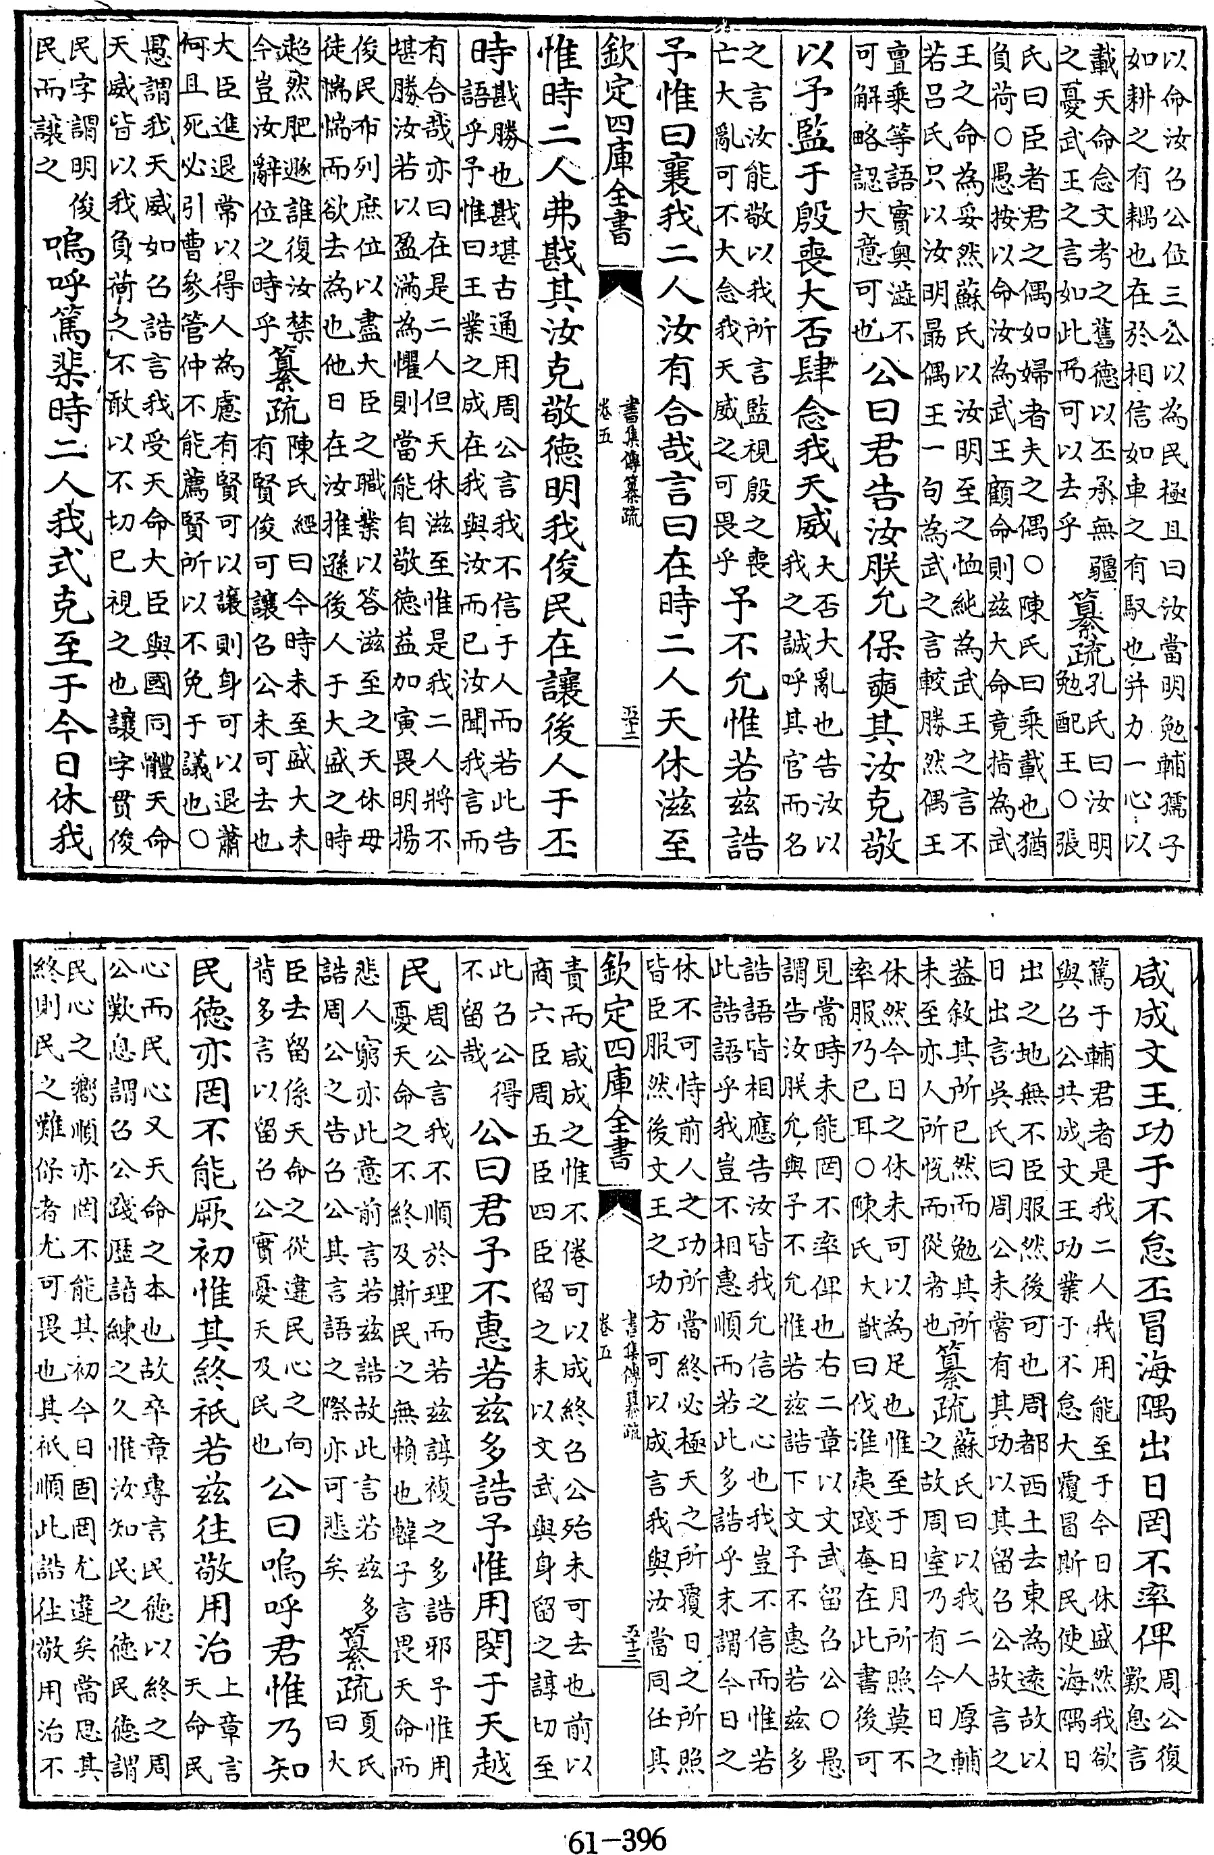 以命汝召公位三公以為民極且曰汝當明勉輔孺子
如耕之有耦也在於相信如車之有馭也并力一心以
載天命念文考之舊德以丕承無疆
之憂武王之言如此而可以去乎
纂疏
孔氏曰汝明
勉配王○張
氏曰臣者君之偶如婦者夫之偶○陳氏曰乘載也猶
負荷○愚按以命汝為武王顧命則兹大命竟指為武
王之命為妥然蘇氏以汝明至之恤純為武王之言不
若呂氏只以汝明勗偶王一句為武之言較勝然偶王
亶乘等語實奧澁不
可解略認大意可也
公曰君告汝朕允保奭其汝克敬
以予監于殷喪大否肆念我天威
大否大亂也告汝以
我之誠呼其官而名
之言汝能敬以我所言監視殷之喪
亡大亂可不大念我天威之可畏乎
予不允惟若兹誥
予惟曰襄我二人汝有合哉言曰在時二人天休滋至
欽定四庫全書
書集傳纂疏
卷五
五十二
惟時二人弗戡其汝克敬德明我俊民在讓後人于丕
時
戡勝也戡堪古通用周公言我不信于人而若此告
語乎予惟曰王業之成在我與汝而已汝聞我言而
有合哉亦曰在是二人但天休滋至惟是我二人將不
堪勝汝若以盈滿為懼則當能自敬德益加寅畏明揚
俊民布列庶位以盡大臣之職業以答滋至之天休毋
徒惴惴而欲去為也他日在汝推遜後人于大盛之時
超然肥遯誰復汝禁
今豈汝辭位之時乎
纂疏
陳氏經曰今時未至盛大未
有賢俊可讓召公未可去也
大臣進退常以得人為慮有賢可以讓則身可以退蕭
何且死必引曹參管仲不能薦賢所以不免于議也○
愚謂我天威如召誥言我受天命大臣與國同體天命
天威皆以我負荷之不敢以不切已視之也讓字貫俊
民字謂明俊
民而讓之
嗚呼篤棐時二人我式克至于今日休我
咸成文王功于不怠丕冒海隅出日罔不率俾
周公復
歎息言
篤于輔君者是我二人我用能至于今日休盛然我欲
與召公共成文王功業于不怠大覆冒斯民使海隅日
出之地無不臣服然後可也周都西土去東為遠故以
日出言吳氏曰周公未嘗有其功以其留召公故言之
葢敘其所已然而勉其所
未至亦人所悅而從者也
纂疏
蘇氏曰以我二人厚輔
之故周室乃有今日之
休然今日之休未可以為足也惟至于日月所照莫不
率服乃已耳○陳氏大猷曰伐淮夷踐奄在此書後可
見當時未能罔不率俾也右二章以文武留召公○愚
謂告汝朕允與予不允惟若兹誥下文予不惠若兹多
誥語皆相應告汝皆我允信之心也我豈不信而惟若
此誥語乎我豈不相惠順而若此多誥乎末謂今日之
休不可恃前人之功所當終必極天之所覆日之所照
皆臣服然後文王之功方可以成言我與汝當同任其
欽定四庫全書
書集傳纂疏
卷五
五十三
責而咸成之惟不倦可以成終召公殆未可去也前以
商六臣周五臣四臣留之末以文武與身留之諄切至
此召公得
不留哉
公曰君予不惠若兹多誥予惟用閔于天越
民
周公言我不順於理而若兹諄複之多誥邪予惟用
憂天命之不終及斯民之無賴也韓子言畏天命而
悲人窮亦此意前言若兹誥故此言若兹多
誥周公之告召公其言語之際亦可悲矣
纂疏
夏氏
曰大
臣去留係天命之從違民心之向
背多言以留召公實憂天及民也
公曰嗚呼君惟乃知
民德亦罔不能厥初惟其終祇若兹往敬用治
上章言
天命民
心而民心又天命之本也故卒章專言民德以終之周
公歎息謂召公踐歷諳練之久惟汝知民之德民德謂
民心之嚮順亦罔不能其初今日固罔尤違矣當思其
終則民之難保者尤可畏也其祇順此誥往敬用治不
61-396